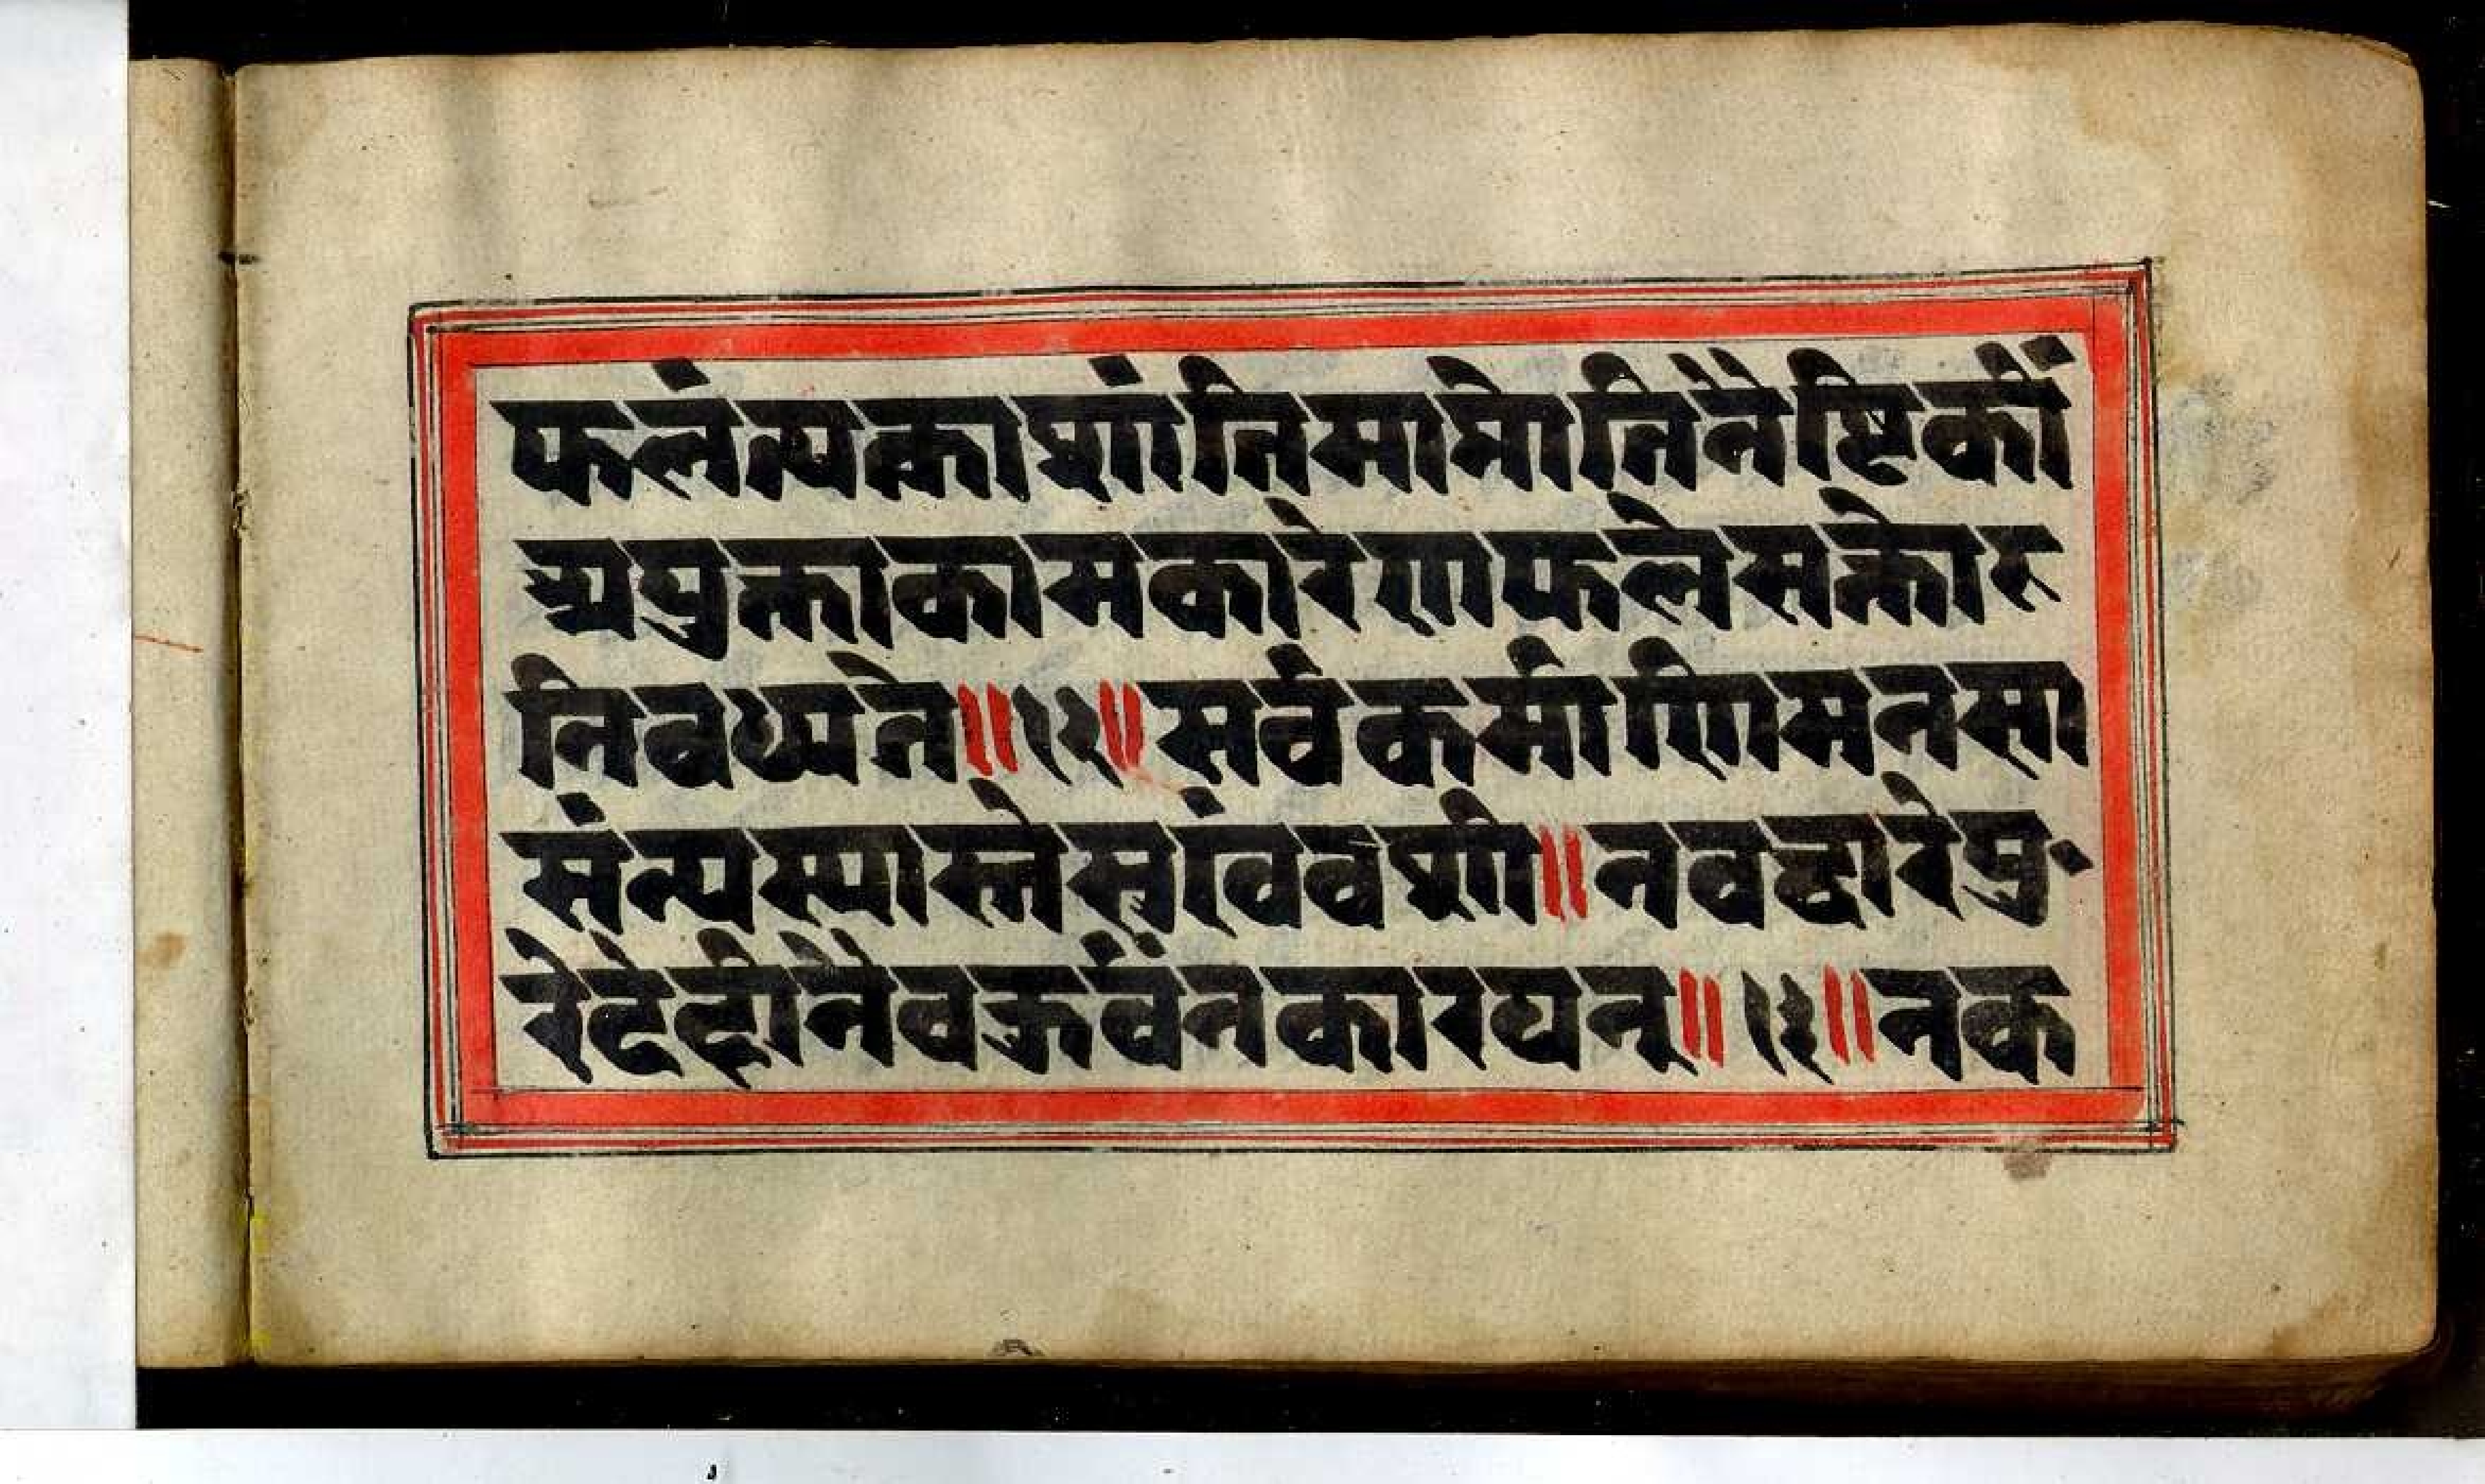 फलंत्यक्त्काशांतिमाप्नोतिनैष्टिकीं
अयुक्ताकामकारेणफलेसक्तोरु
निवध्यते॥१२॥सर्वकर्माणिमनसा
संन्यस्यास्तेसुखंवशी॥नवद्वारेपु
रेदेहीनैवकुर्वंनकारयन्॥१३॥नक